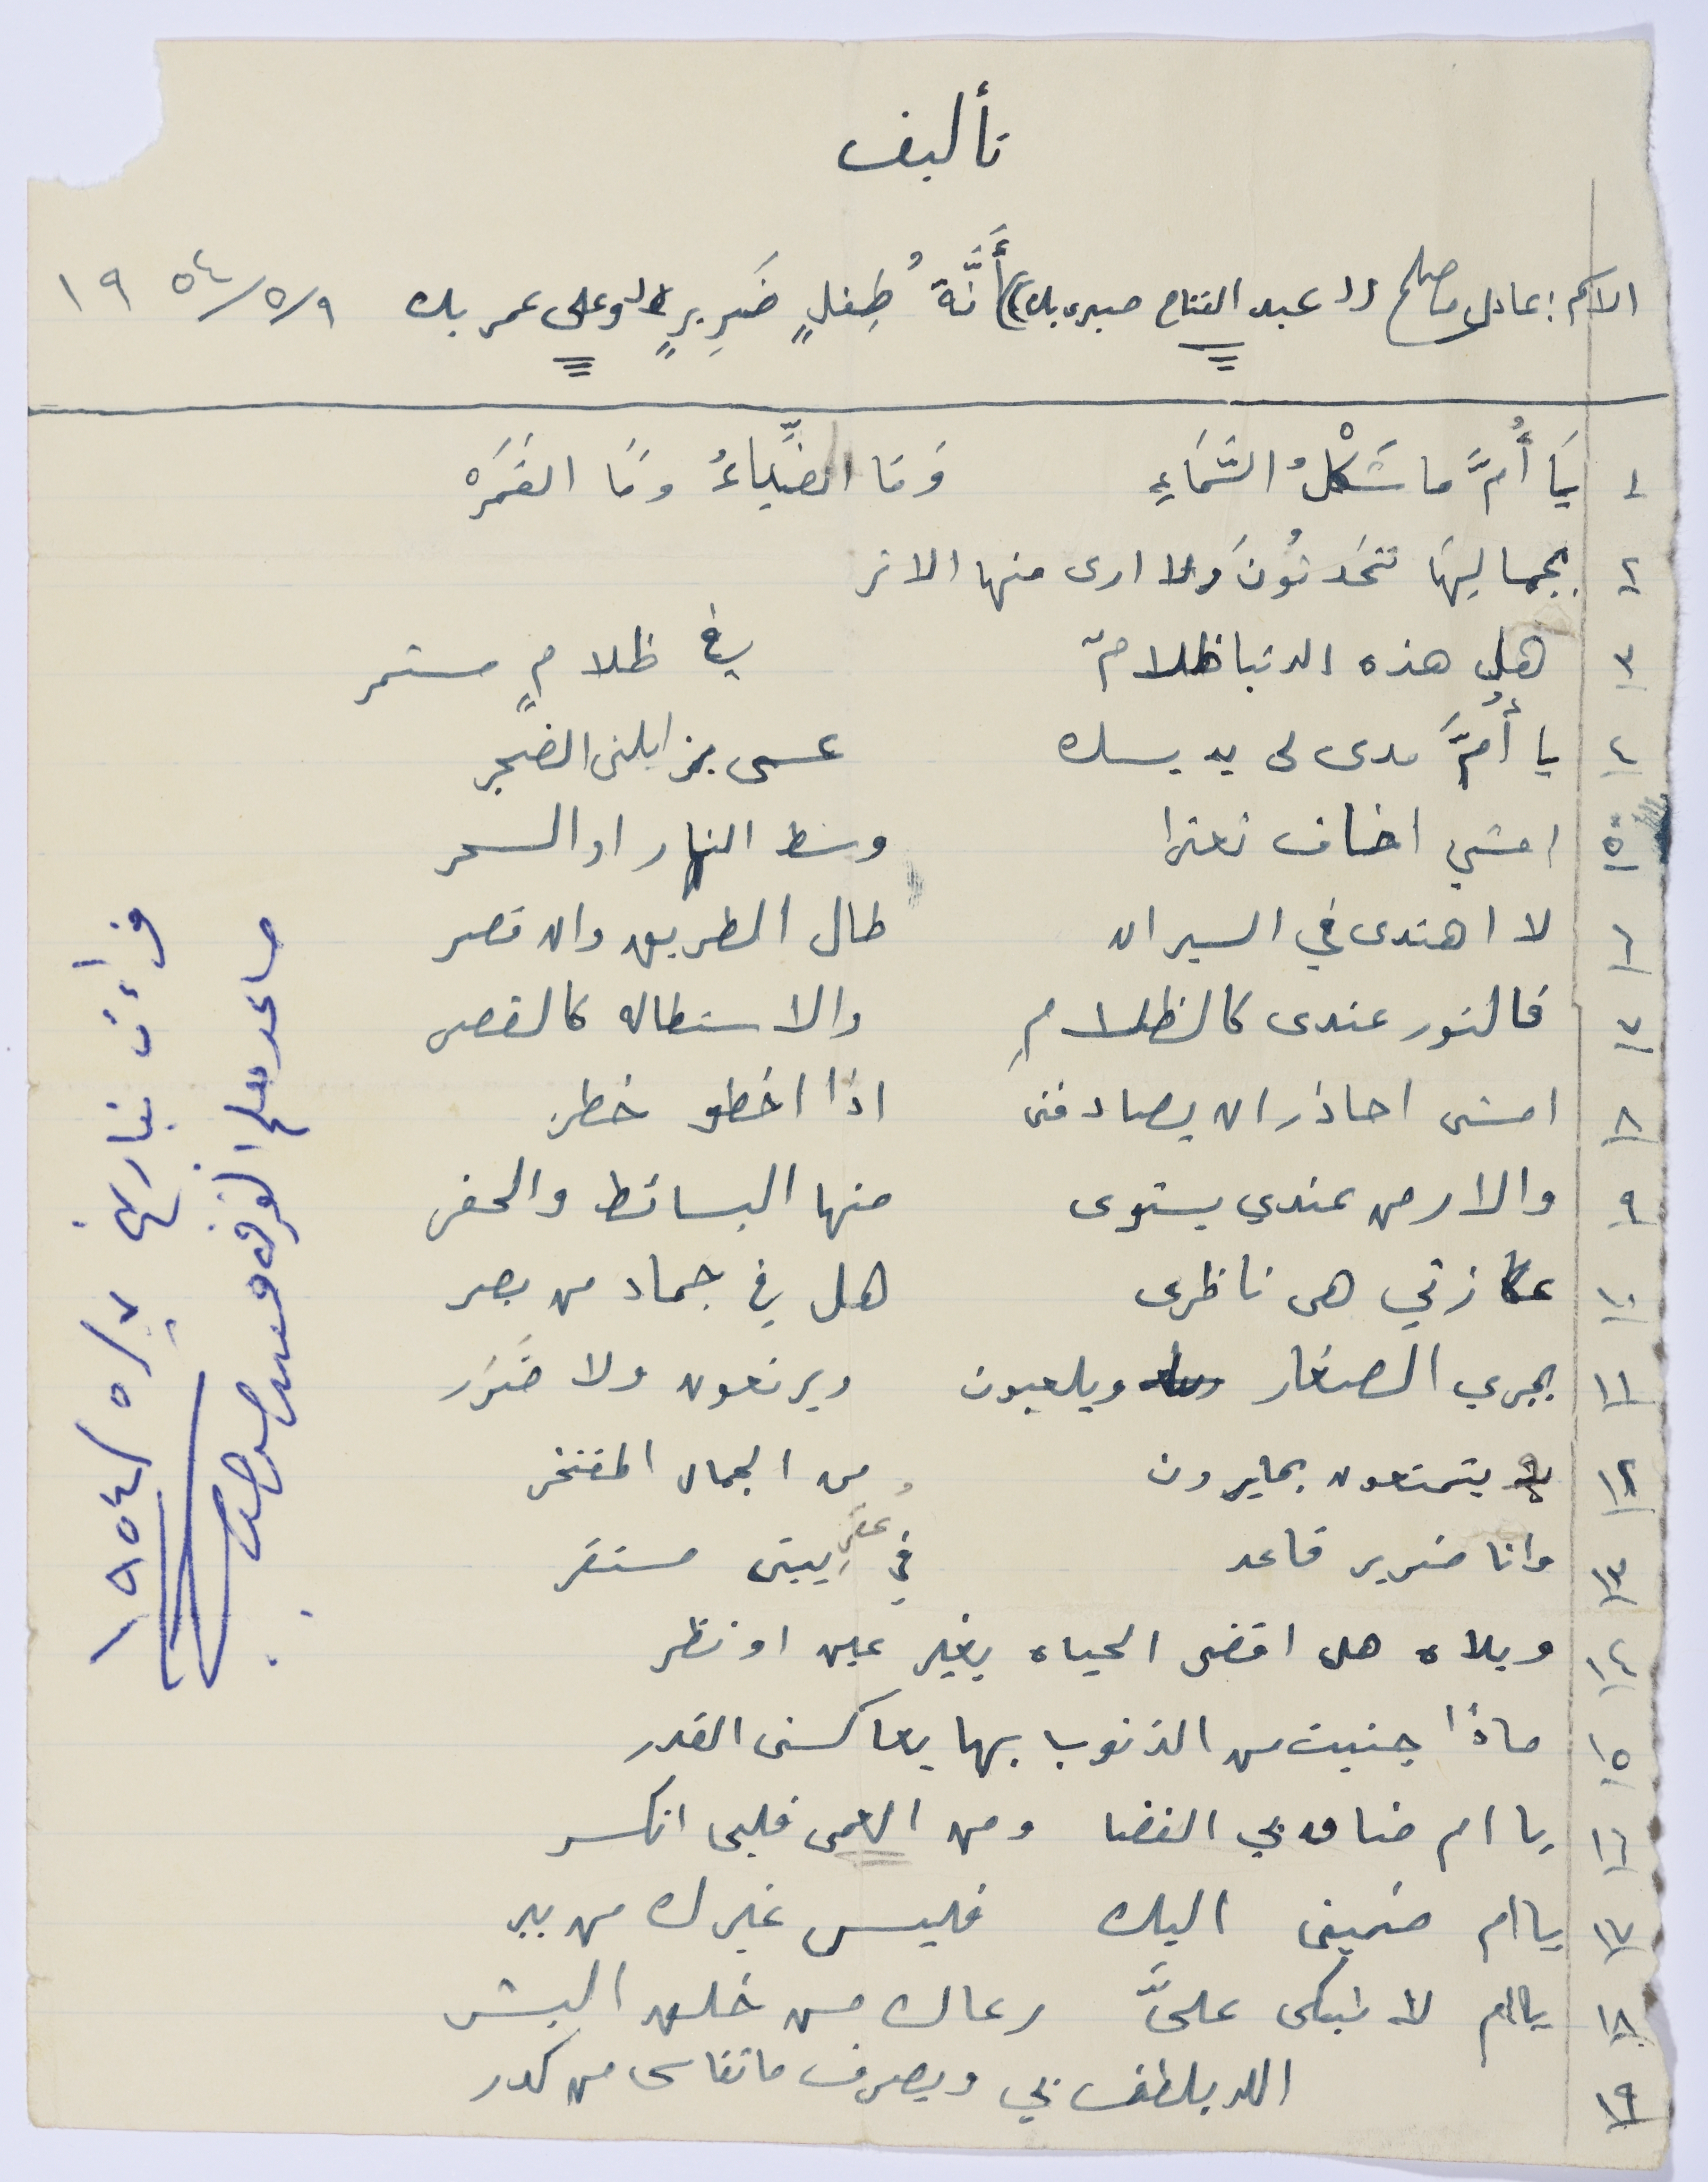 تأليف
الاسم: عادل صالح (( عبد الفتاح صبرى بك )) أَنَّةُ طِفلٍ ضَرِيرٍ وعلى عمر بك ٩/٥/١٩٥٤
١ يَا أُمَّ ما شَكْلُ السَّمَاءِ وَمَا الضِّيَاءُ وَمَا القَمَرْ
٢ بجمالِهَا تتحَدثُونَ ولا ارى منها الاثر
٣ هل هذه الدنيا ظلامٌ في ظلامٍ مستمر
٤ يا أُمَّ مدى لى يديك عسى يزايلنى الضجر
٥ امشي اخاف تعثرا وسط النهار او السحر
٦ لا اهتدى في السير ان طال الطريق وان قصر
٧ فالنور عندى كالظلامِ والاستطاله كالقصر
٨ امشى احاذر ان يصادفنى اذا اخطو خطر
٩ والارض عندي يستوى منها البسائط والحفر
١٠ عكازتي هى ناظرى هل في جماد من بصر
١١ يجري الصغار ويلعبون ويرتعون ولا ضَرَر
١٢ يتمتعون بما يرون من الجمال المفتخر
١٣ وانا ضرير قاعد في عقرِ بيتى مستقر
١٤ ويلاه هل اقضى الحياه بغير عين او نظر
١٥ ماذا جنيت من الذنوب بها يعاكسنى القدر
١٦ يا ام ضاق بي الفضا ومن العمى قلبى انكسر
١٧ يا ام ضمينى اليك فليس غيرك من يبر
١٨ يا ام لا تبكى علىَّ رعاك من خلق البشر
١٩ الله يلطف بي ويصرف ما تقاسى من كدر
قراءت بتاريخ ٧/٥/١٩٥٤